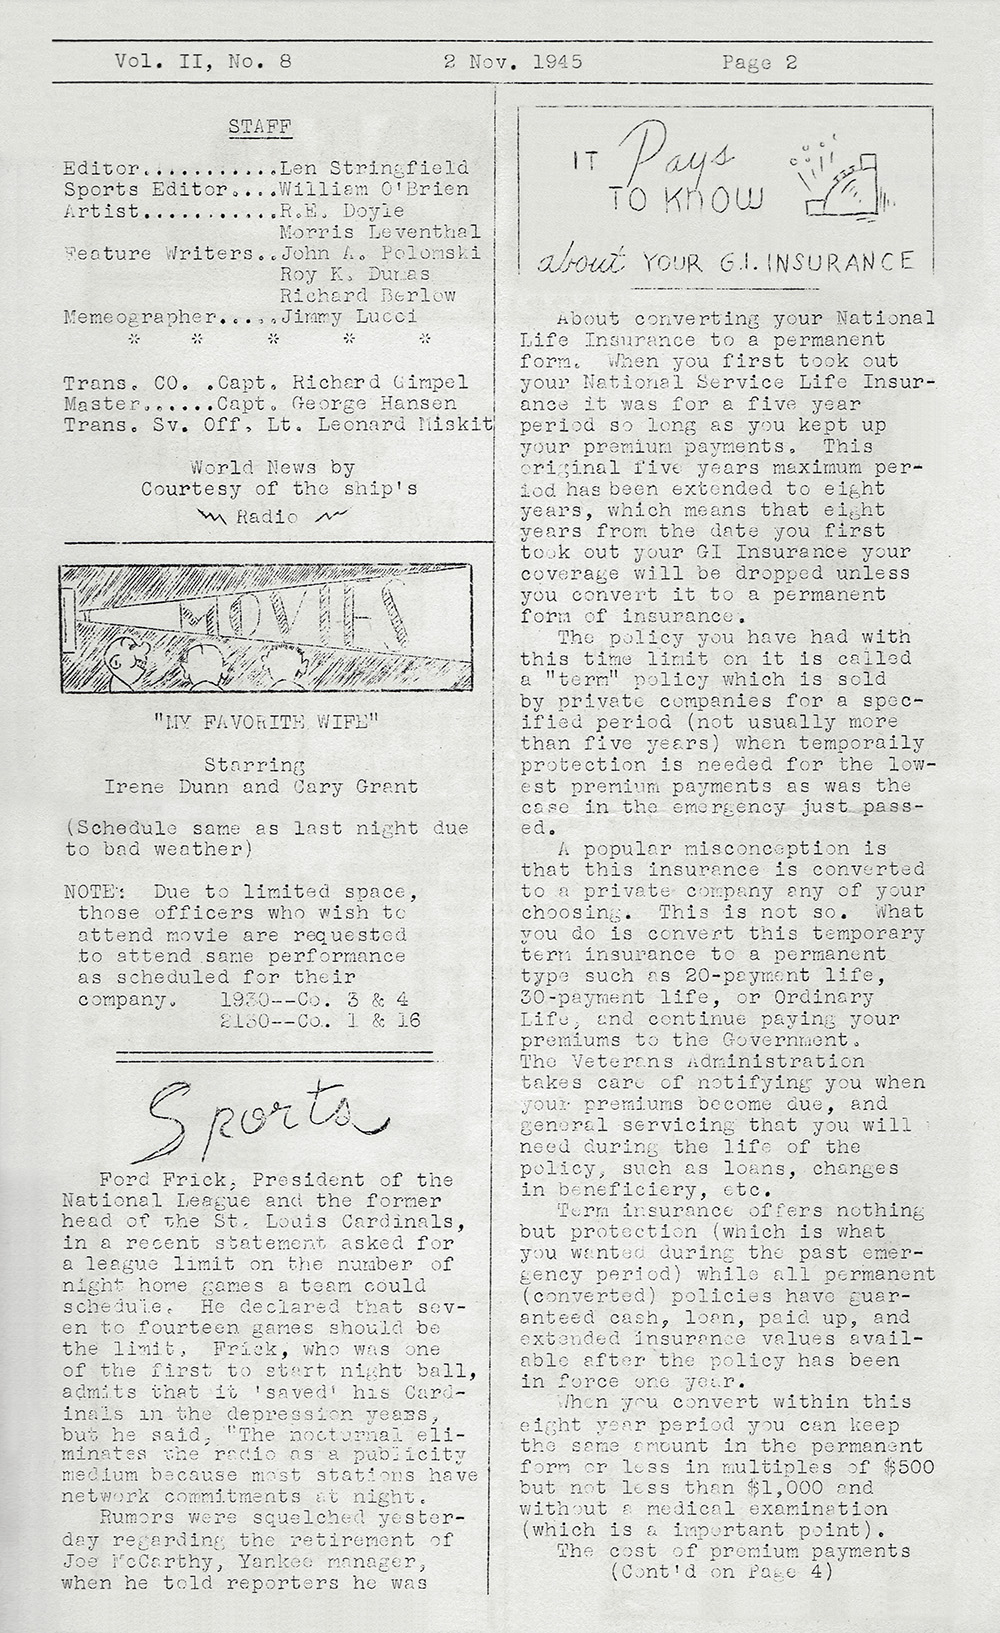 Vol. II, No. 8 2 Nov. 1945 Page 2
STAFF
Editor...........Len Stringfield
Sports Editor....William O'Brien
Artist...........R.E. Doyle
Morris Leventhal
Feature Writers..John A. Polomski
Roy K. Dumas
Richard Berlow
Memeographer.....Jimmy Lucci
* * * * *
Trans. CO. .Capt. Richard Gimpel
Master......Capt. George Hansen
Trans. Sv. Off, Lt. Leonard Miskit
World News by
Courtesy of the ship's
Radio
MOVIES
"MY FAVORITE WIFE"
Starring
Irene Dunn and Cary Grant
(Schedule same as last night due
to bad weather)
NOTE: Due to limited space,
those officers who wish to
attend movie are requested
to attend same performance
as scheduled for their
company. 1930--Co. 3 & 4
2130--Co. 1 & 16
Sports
Ford Frick, President of the
National League and the former
head of the St. Louis Cardinals,
in a recent statement asked for
a league limit on the number of
night home games a team could
schedule. He declared that sev-
en to fourteen games should be
the limit. Frick, who was one
of the first to start night ball,
admits that it 'saved' his Card-
inals in the depression years,
but he said, "The nocturnal eli-
minates the radio as a publicity
medium because most stations have
network commitments at night.
Rumors were squelched yester-
day regarding the retirement of
Joe McCarthy, Yankee manager,
when he told reporters he was
IT Pays
TO KNOW
about YOUR G.I. INSURANCE
About converting your National
Life Insurance to a permanent
form. When you first took out
your National Service Life Insur-
ance it was for a five year
period so long as you kept up
your premium payments. This
original five years maximum per-
iod has been extended to eight
years, which means that eight
years from the date you first
took out your GI Insurance your
coverage will be dropped unless
you convert it to a permanent
form of insurance.
The policy you have had with
this time limit on it is called
a "term" policy which is sold
by private companies for a spec-
ified period (not usually more
than five years) when temporaily
protection is needed for the low-
est premium payments as was the
case in the emergency just pass-
ed.
A popular misconception is
that this insurance is converted
to a private company any of your
choosing. This is not so. What
you do is convert this temporary
term insurance to a permanent
type such as 20-payment life,
30-payment life, or Ordinary
Life, and continue paying your
premiums to the Government.
The Veterans Administration
takes care of notifying you when
your premiums become due, and
general servicing that you will
need during the life of the
policy, such as loans, changes
in beneficiery, etc.
Term insurance offers nothing
but protection (which is what
you wanted during the past emer-
gency period) while all permanent
(converted) policies have guar-
anteed cash, loan, paid up, and
extended insurance values avail-
able after the policy has been
in force one year.
When you convert within this
eight year period you can keep
the same amount in the permanent
form or less in multiples of $500
but not less than $1,000 and
without a medical examination
(which is a important point).
The cost of premium payments
(Cont'd on Page 4)